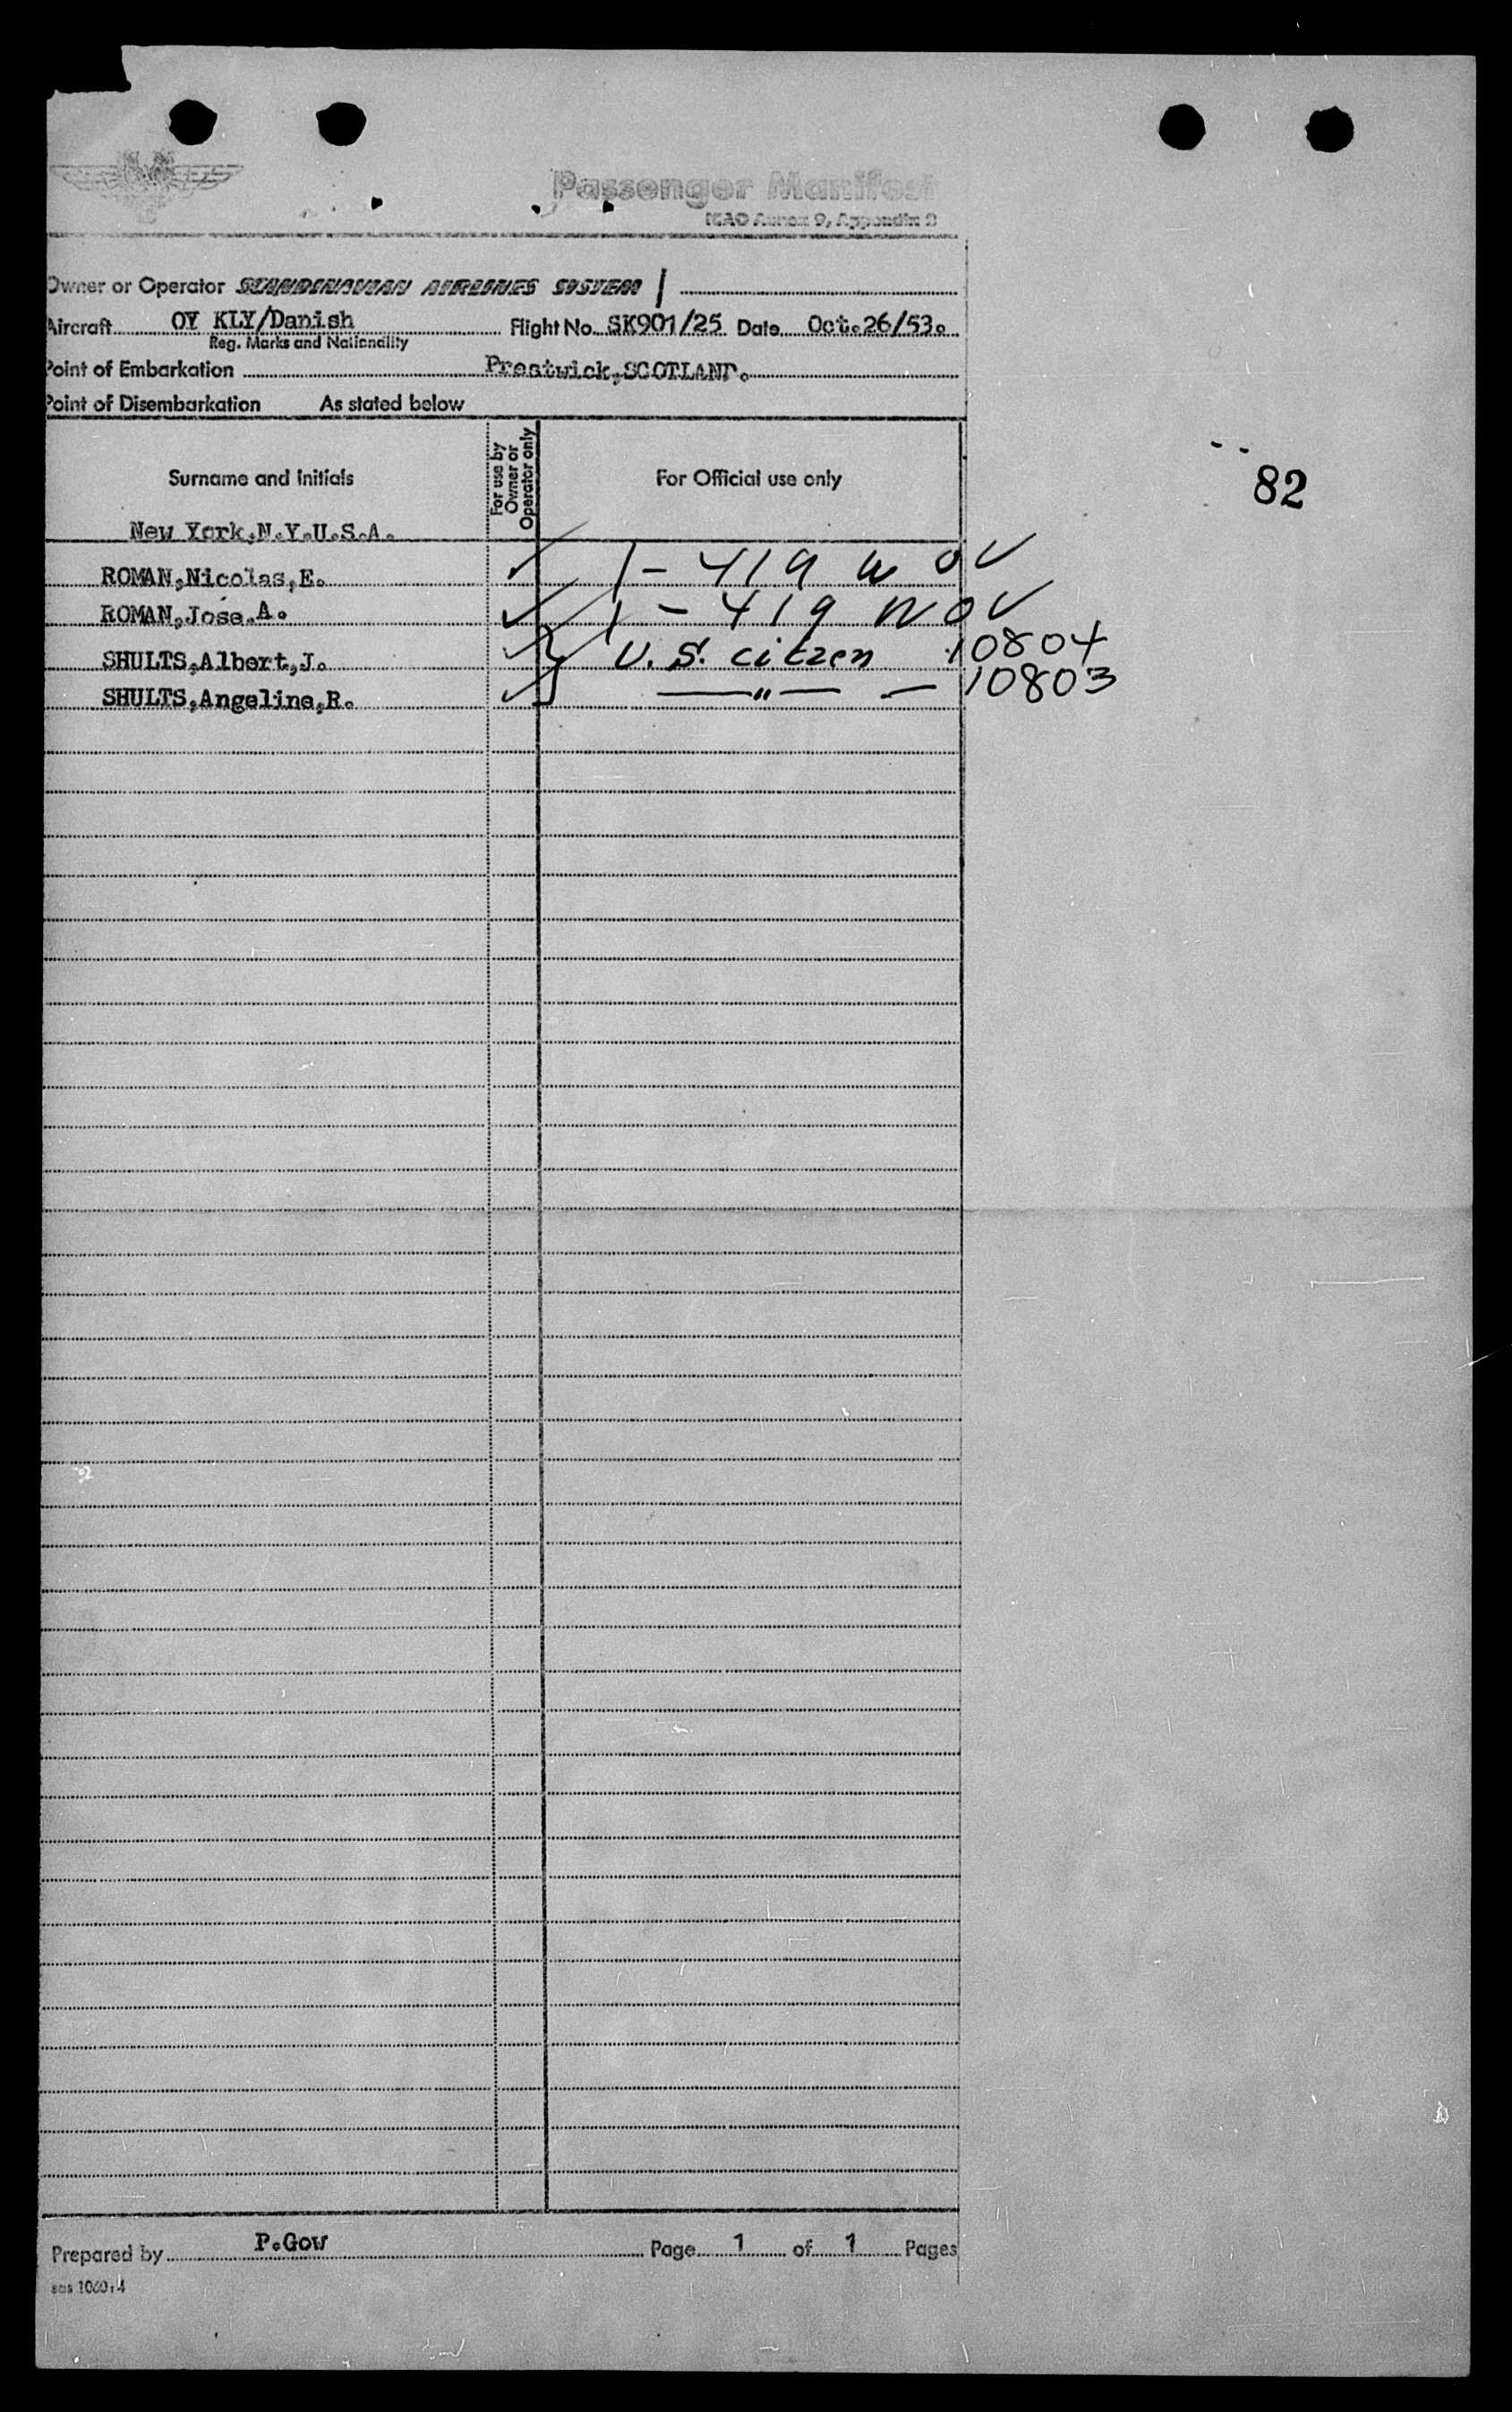 Passenger Manifest
ICAO Annex 9, Appendix 3
Owner or Operator SCANDINAVIAN AIRLINES SYSTEM
Aircraft OY KLY/Danish Flight No. SK901/25 Date Oct.26/53.
Reg. Marks and Nationality
Point of Embarkation Prestwick,SCOTLAND.
Point of Disembarkation As stated below
Surname and Initials For use by Owner or Operator only For Official use only
82
New York,N.Y.U.S.A.
ROMAN,Nicolas,E. 1 - 419
ROMAN,Jose.A. 1 - 419
SHULTS,Albert,J. U.S. citzen 10804
SHULTS,Angeline,R. — " — — 10803
Prepared by P.Gow Page 1 of 1 Pages
sas 1060:4